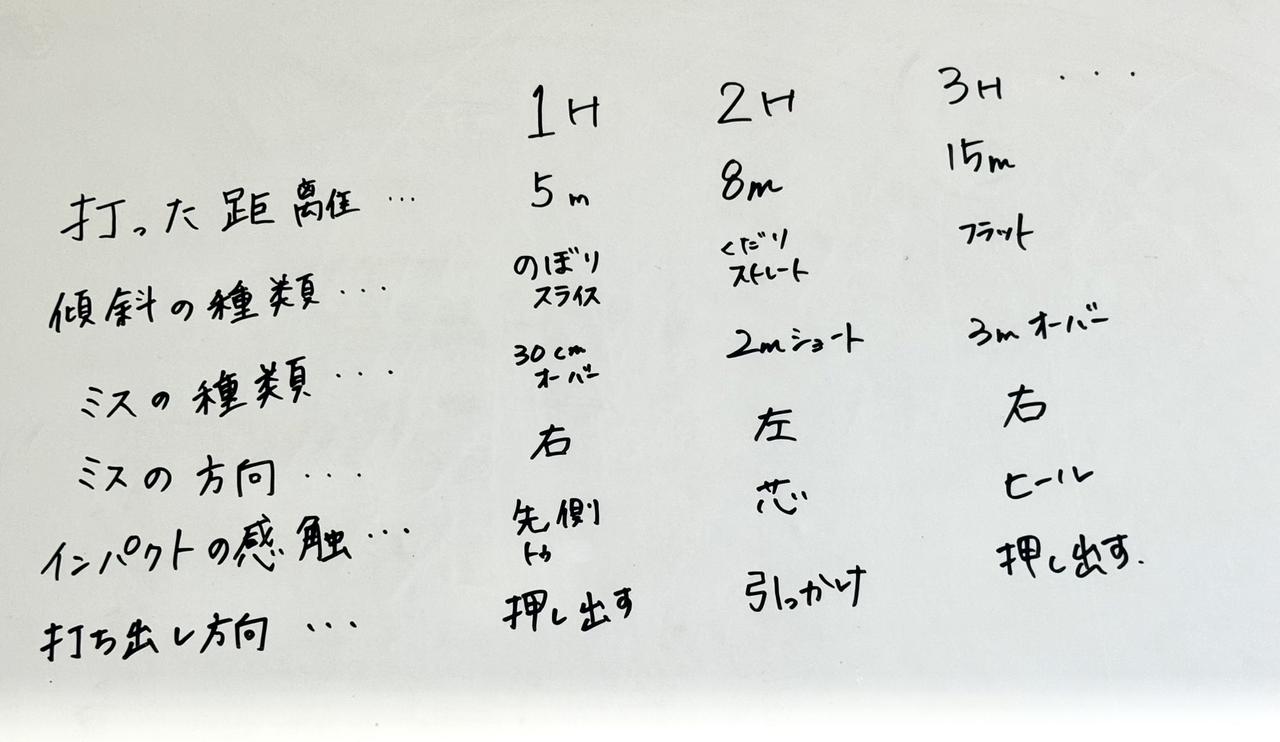 1H 2H 3H ...
打った距離 ... 5m 8m 15m
傾斜の種類 ... のぼり くだり フラット
スライス ストレート
ミスの種類 ... 30cm 2mショート 3mオーバー
オーバー
ミスの方向 ... 右 左 右
インパクトの感触 ... 先側 芯 ヒール
トゥ
打ち出し方向 ... 押し出す 引っかけ 押し出す.